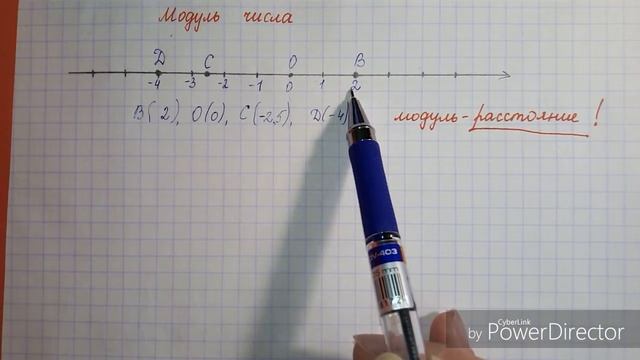 Модуль числа
D C O B
-4 -3 -2 -1 0 1 2
B(2), O(0), C(-2,5), D(-4)
модуль - расстояние!
-403
mm
CyberLink
by PowerDirector